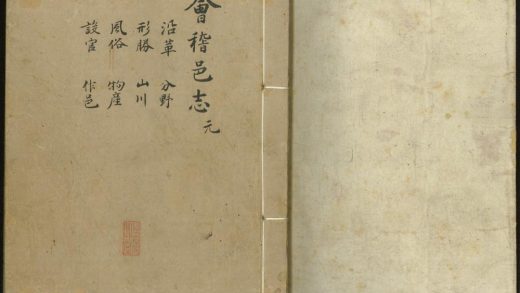 會稽邑志 元
沿革 分野
形勝 山川
風俗 物產
設官 作邑